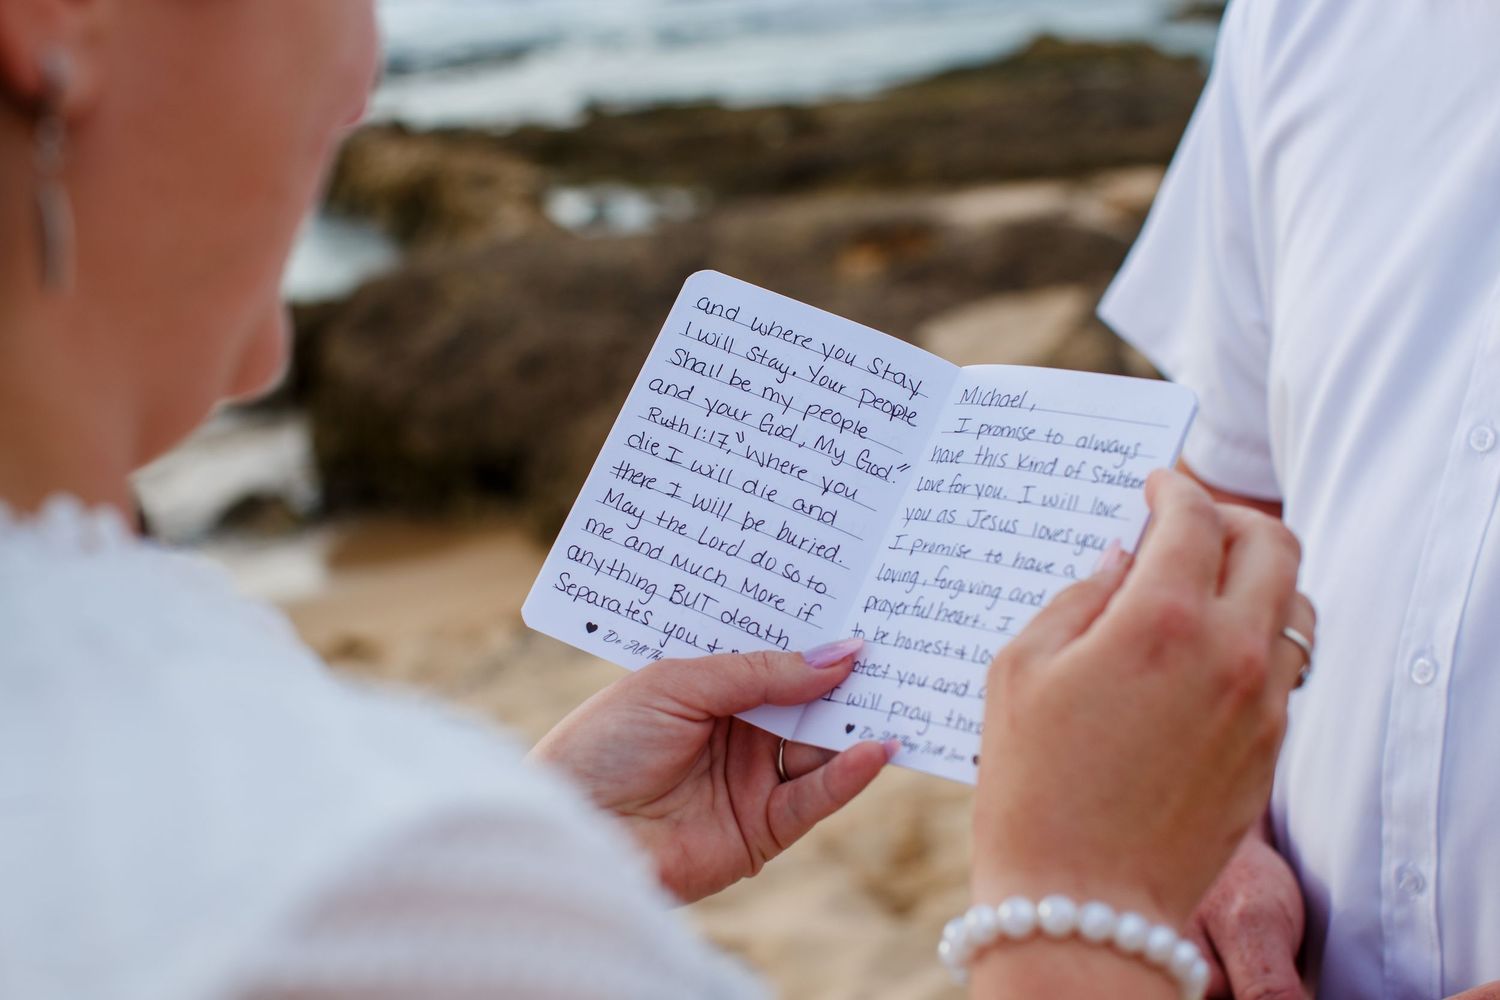 and where you stay
I will stay. Your people
Shall be my people
and your God, My God."
Ruth 1:17, "Where you
die I will die and
there I will be buried.
May the Lord do so to
me and Much More if
anything BUT death
Separates you +
Do All
Michael,
I promise to always
have this kind of Stubborn
love for you. I will love
you as Jesus loves you
I promise to have a
loving, forgiving and
prayerful heart. I
to be honest +
otect you and
I will pray
Do All Things With Love